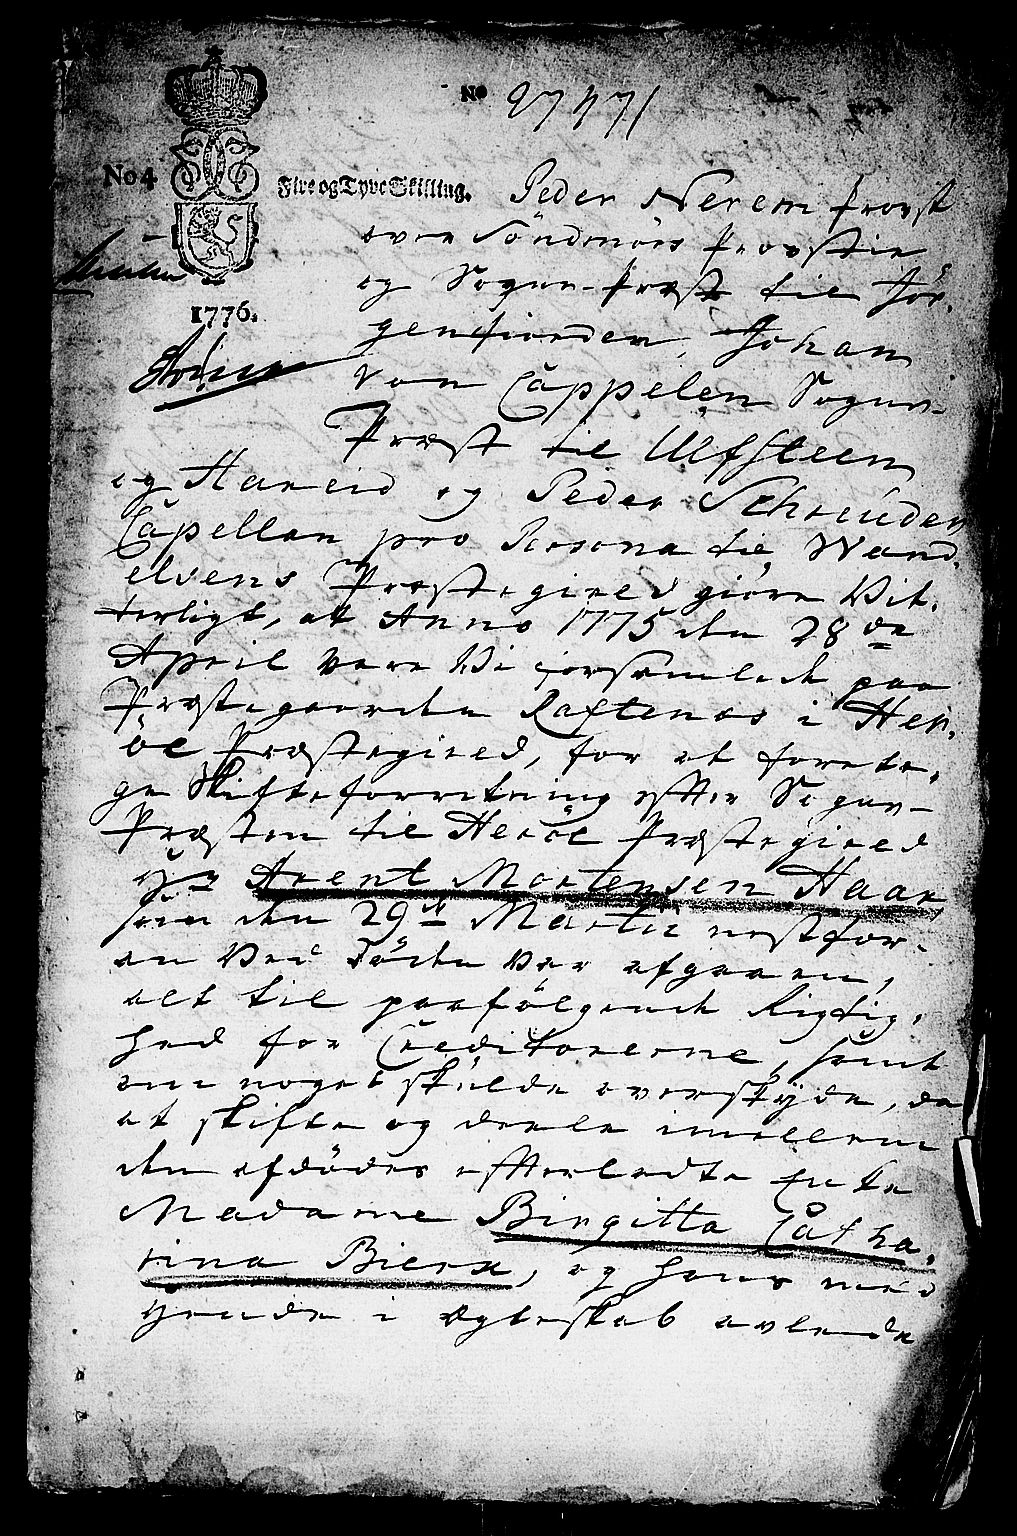 No 27471
No 4
Fire og Tyve Skilling.
1776.
Peder Nerem Provst
over Söndmörs Provstie
og Sogne-Præst til Jör-
genfiorden, Johan
von Cappelen Sogne-
Præst til Ulfsteen
og Hareid og Peder Schreuder
Capellan pro Persona til Wand-
elvens Præstegield giöre Vit-
terligt, at Anno 1775 den 28de
April vare Vi forsamlede paa
Præstegaarden Raftenæs i Her-
öe Præstegield, for at foreta-
ge Skifteforretning efter Sogne-
Præsten til Heröe Præstegield
Hr Arent Mortensen Haar
som den 29de Martii nestfor-
an Ved Döden var afgaaen,
alt til paafölgende Rigtig-
hed for Creditorerne, samt
om noget skulde overskyde, da
at skifte og deele imellem
den afdödes efterladte Enke
Madame Birgitta Catha-
rina Bierx, og hans med
hende i ægteskab avlende